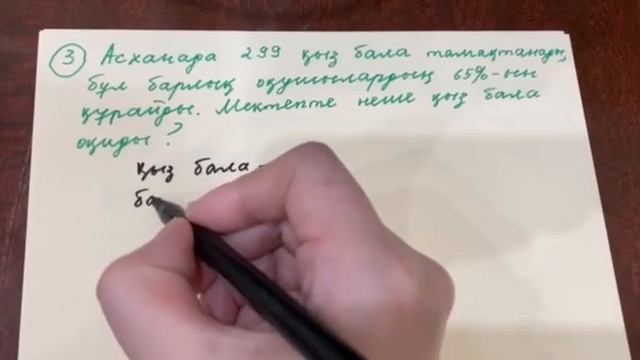 ③ Асханада 299 қыз бала тамақтанады,
бұл барлық оқушылардың 65%-ын
құрайды. Мектепте неше қыз бала
оқиды?
қыз бала -
ба